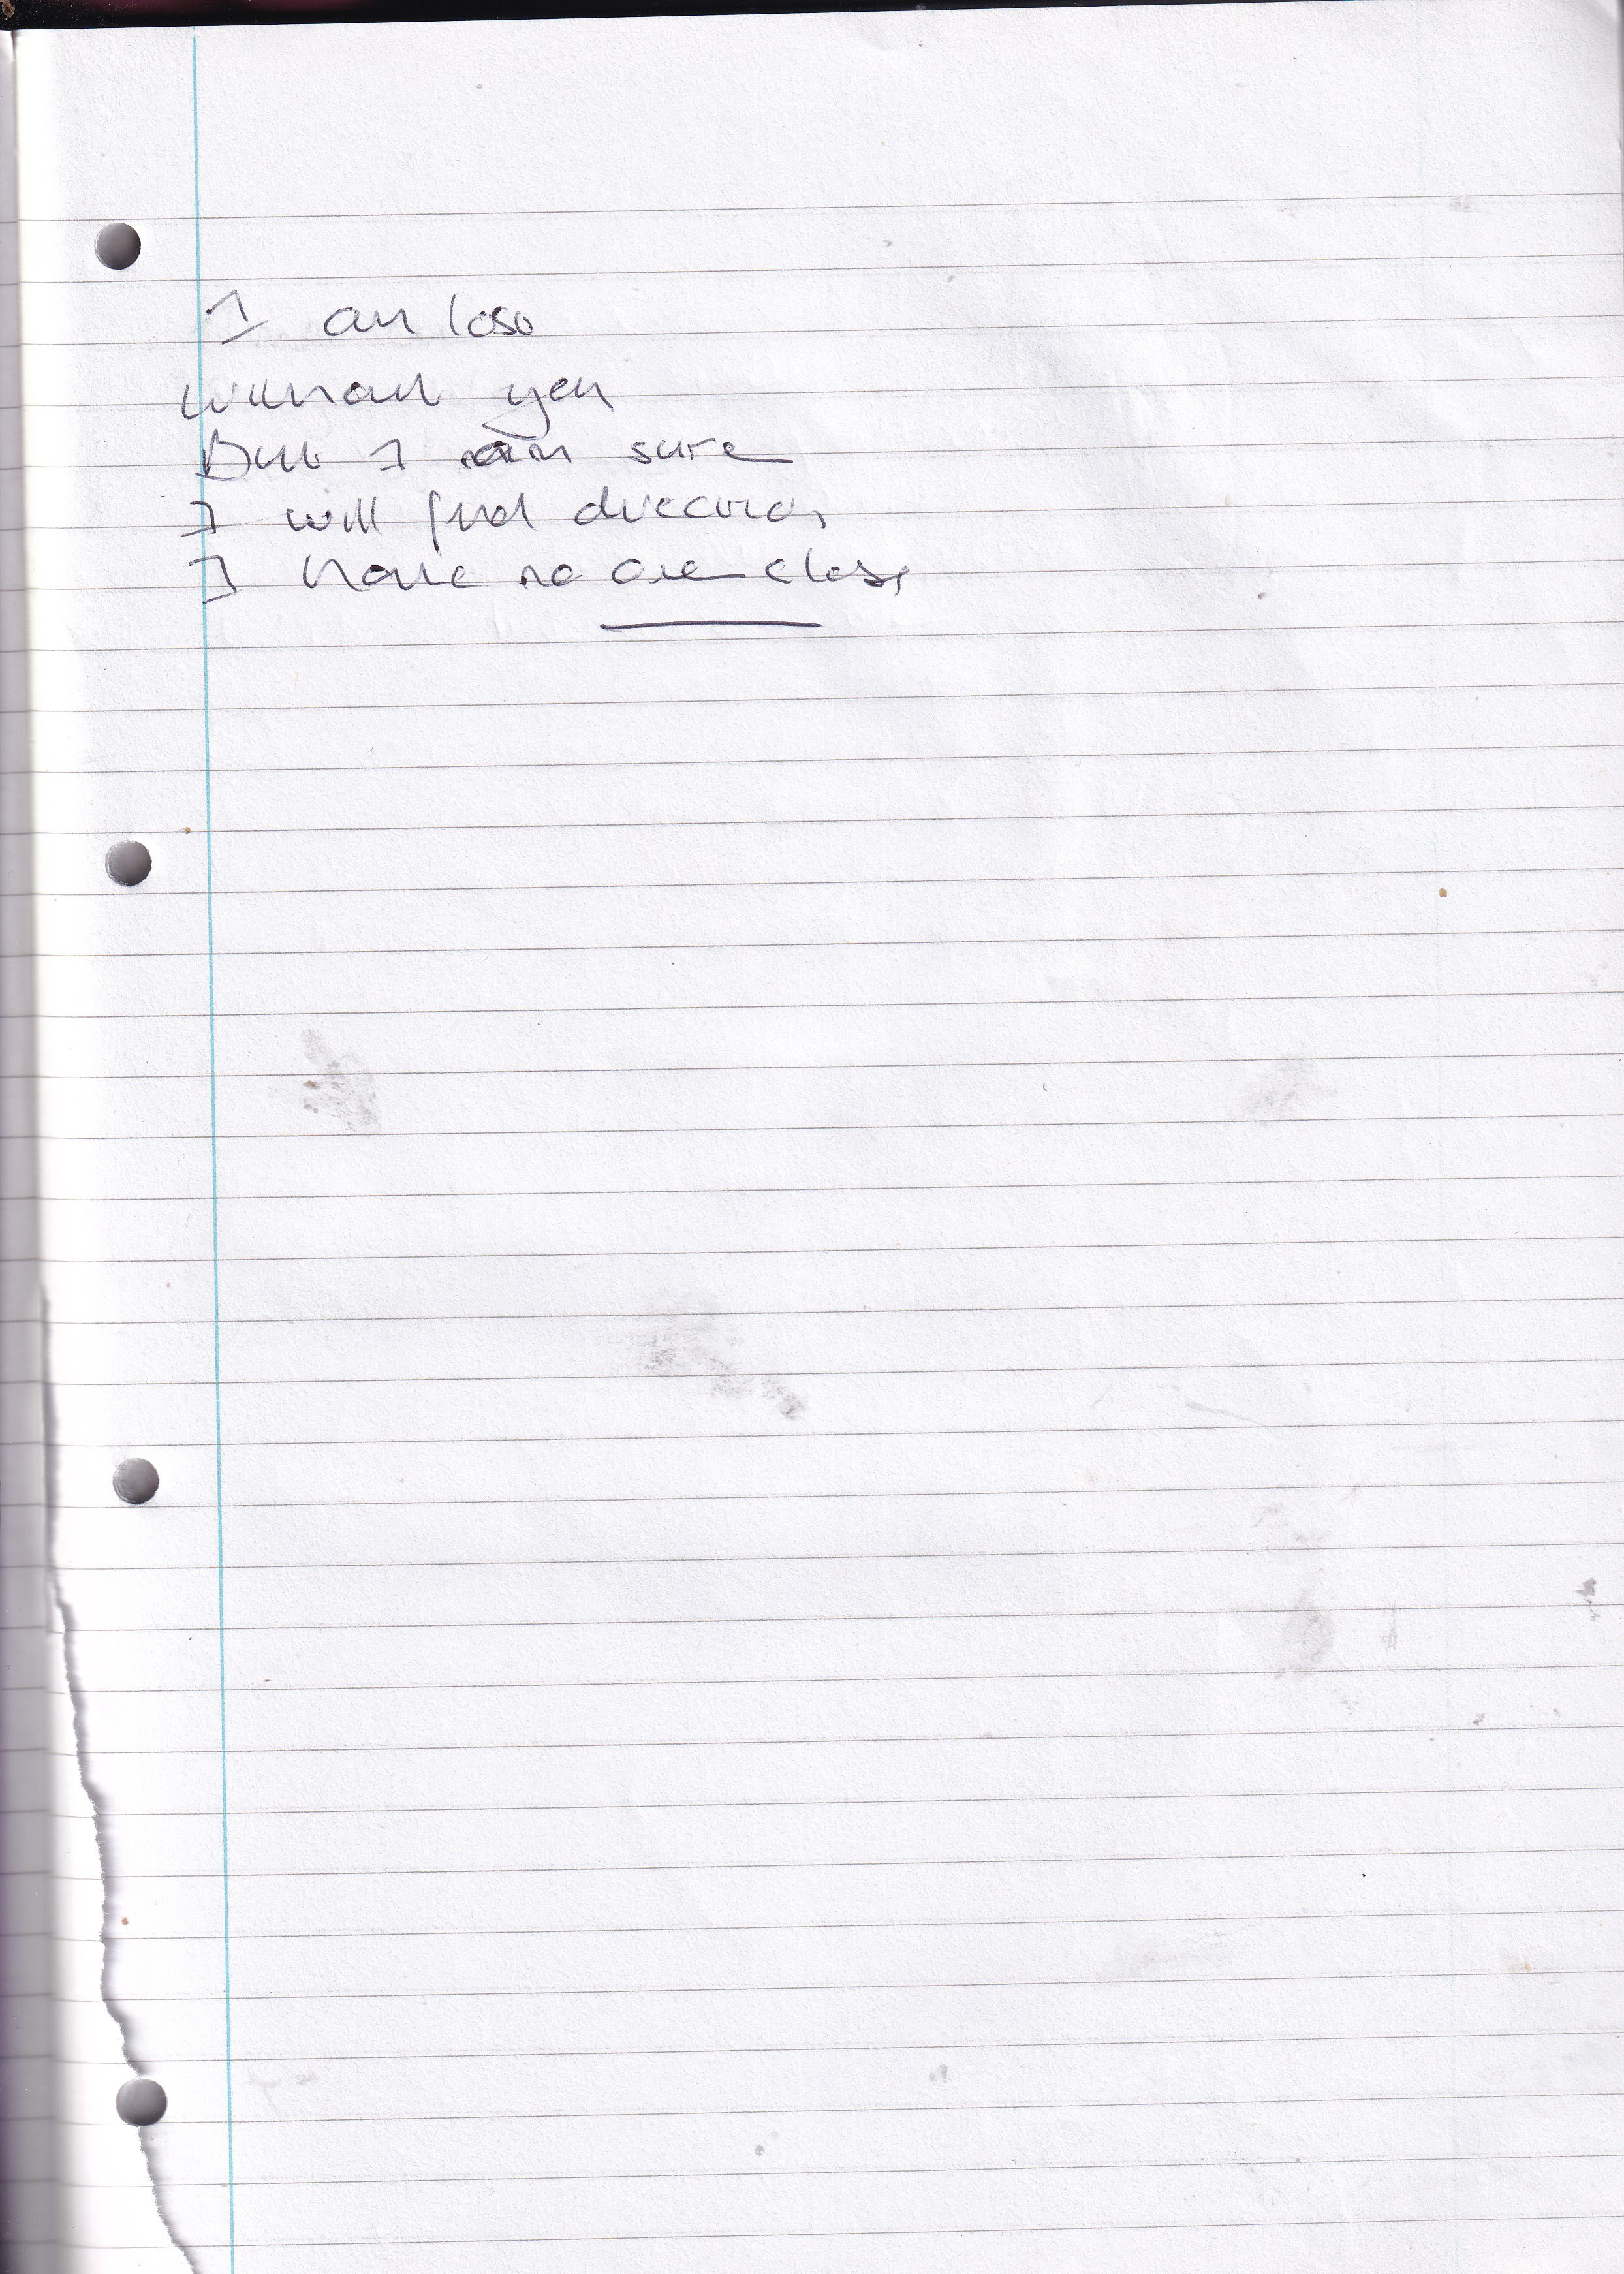 I am lost
without you
But I am sure
I will find direction,
I have no one else,